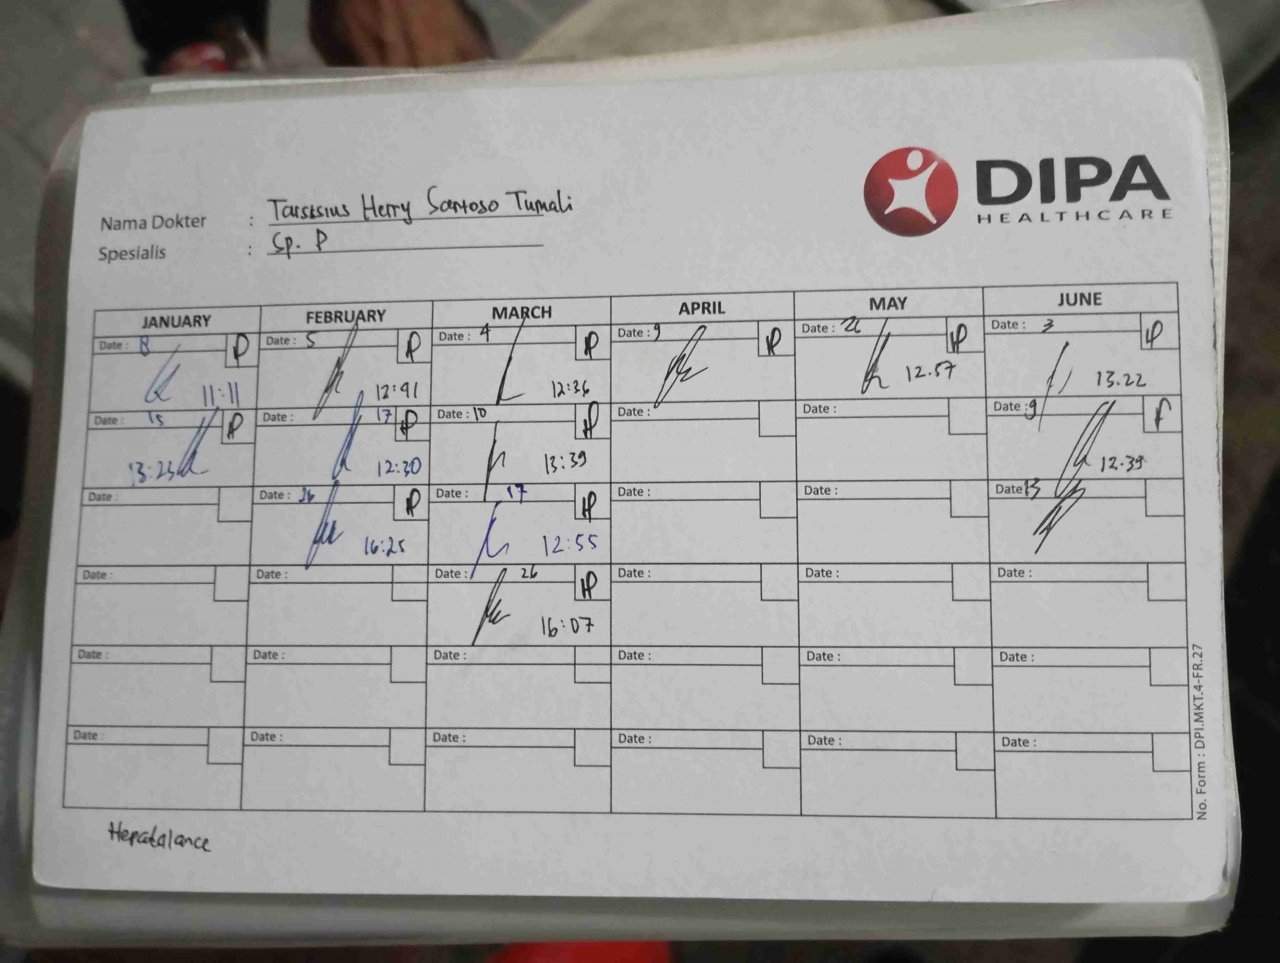 DIPA
HEALTHCARE
Nama Dokter : Tarsisius Herry Santoso Tumali
Spesialis : Sp. P
JANUARY FEBRUARY MARCH APRIL MAY JUNE
Date : 8 Date : 5 Date : 4 Date : 9 Date : 26 Date : 3
11:11 12:41 12:36 12.57 13.22
Date : 15 Date : 17 Date : 10 Date : Date : Date : 9
13:23 12:30 13:39 12.39
Date : Date : 26 Date : 17 Date : Date : Date : 13
16:25 12:55
Date : Date : Date : 26 Date : Date : Date :
16:07
Date : Date : Date : Date : Date : Date :
Date : Date : Date : Date : Date : Date :
Hepabalance
No. Form : DPI.MKT.4-FR.27